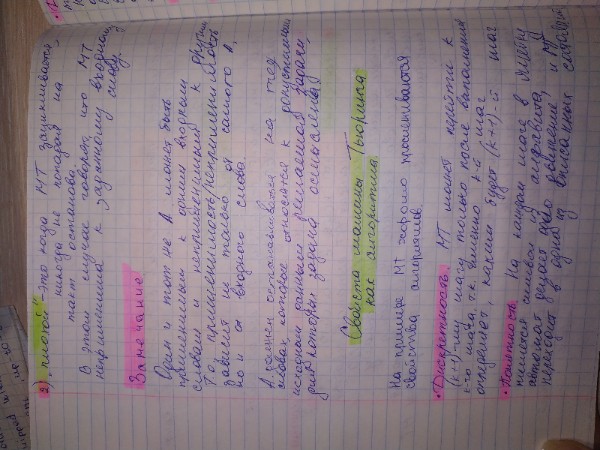 2) „плохой" – это когда МТ зацикливается,
никогда не попадая на
такт останова.
В этом случае говорят, что МТ
неприменима к заданному входному
слову.
Замечание
Один и тот же А может быть
применимым к одним входным
словам и неприменимым к другим
Т.о, применимость/неприменимость
зависит не только от самого А,
но и от входного слова.
А должен останавливаться на тех
словах, которое относятся к допустимыми
исходным данным решаемой задачи,
для которых задача осмысленна
Свойста машины Тьюринга
как алгоритма.
На примере МТ хорошо прослеживаются
свойства алгоритмов.
• Дискретность. МТ может перейти к
(k+1)-му шагу только после выполнения
k-го шага, т.к. именно k-й шаг
определяет, каким будет (k+1)-й шаг
• Понятность. На каждом шаге в ячейку
пишется символ из алфавита,
автомат делает одно движение, и МТ
переходит в одно из описанных состояний